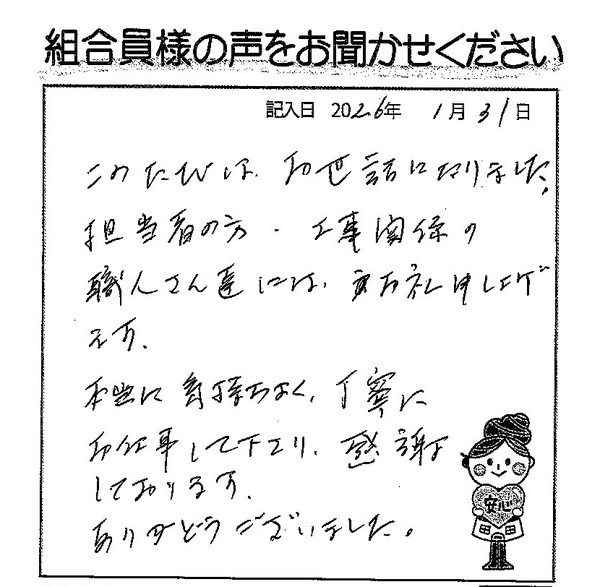 組合員様の声をお聞かせください
記入日 2026年 1月31日
このたびは、お世話になりました。
担当者の方・工事関係の
職人さん達には、お礼申し上げ
ます。
本当に気持ちよく、丁寧に
お仕事して下さり、感謝
しております。
ありがとうございました。
安心